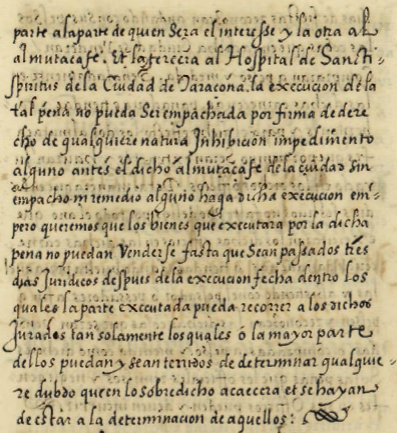 parte a la parte de quien sera el interesse y la otra al
almutaçafe. Et la tercera al Hospital de Sancti-
spiritus de la Ciudad de Taraçona. la execucion de la
tal pena no pueda ser empachada por firma de dere
cho de qualquiere natura Inhibicion impedimento
alguno antes el dicho almutaçafe de la ciudad sin
empacho ni remedio alguno haga dicha execucion em-
pero queremos que los bienes que executara por la dicha
pena no puedan Venderse fasta que sean passados tres
dias Juridicos despues de la execucion fecha dentro los
quales la parte executada pueda recorrer a los dichos
Jurados tan solamente los quales o la mayor parte
dellos puedan y sean tenidos de determinar qualquie-
re dubdo que en lo sobredicho acaecera et se hayan
de estar a la determinacion de aquellos: